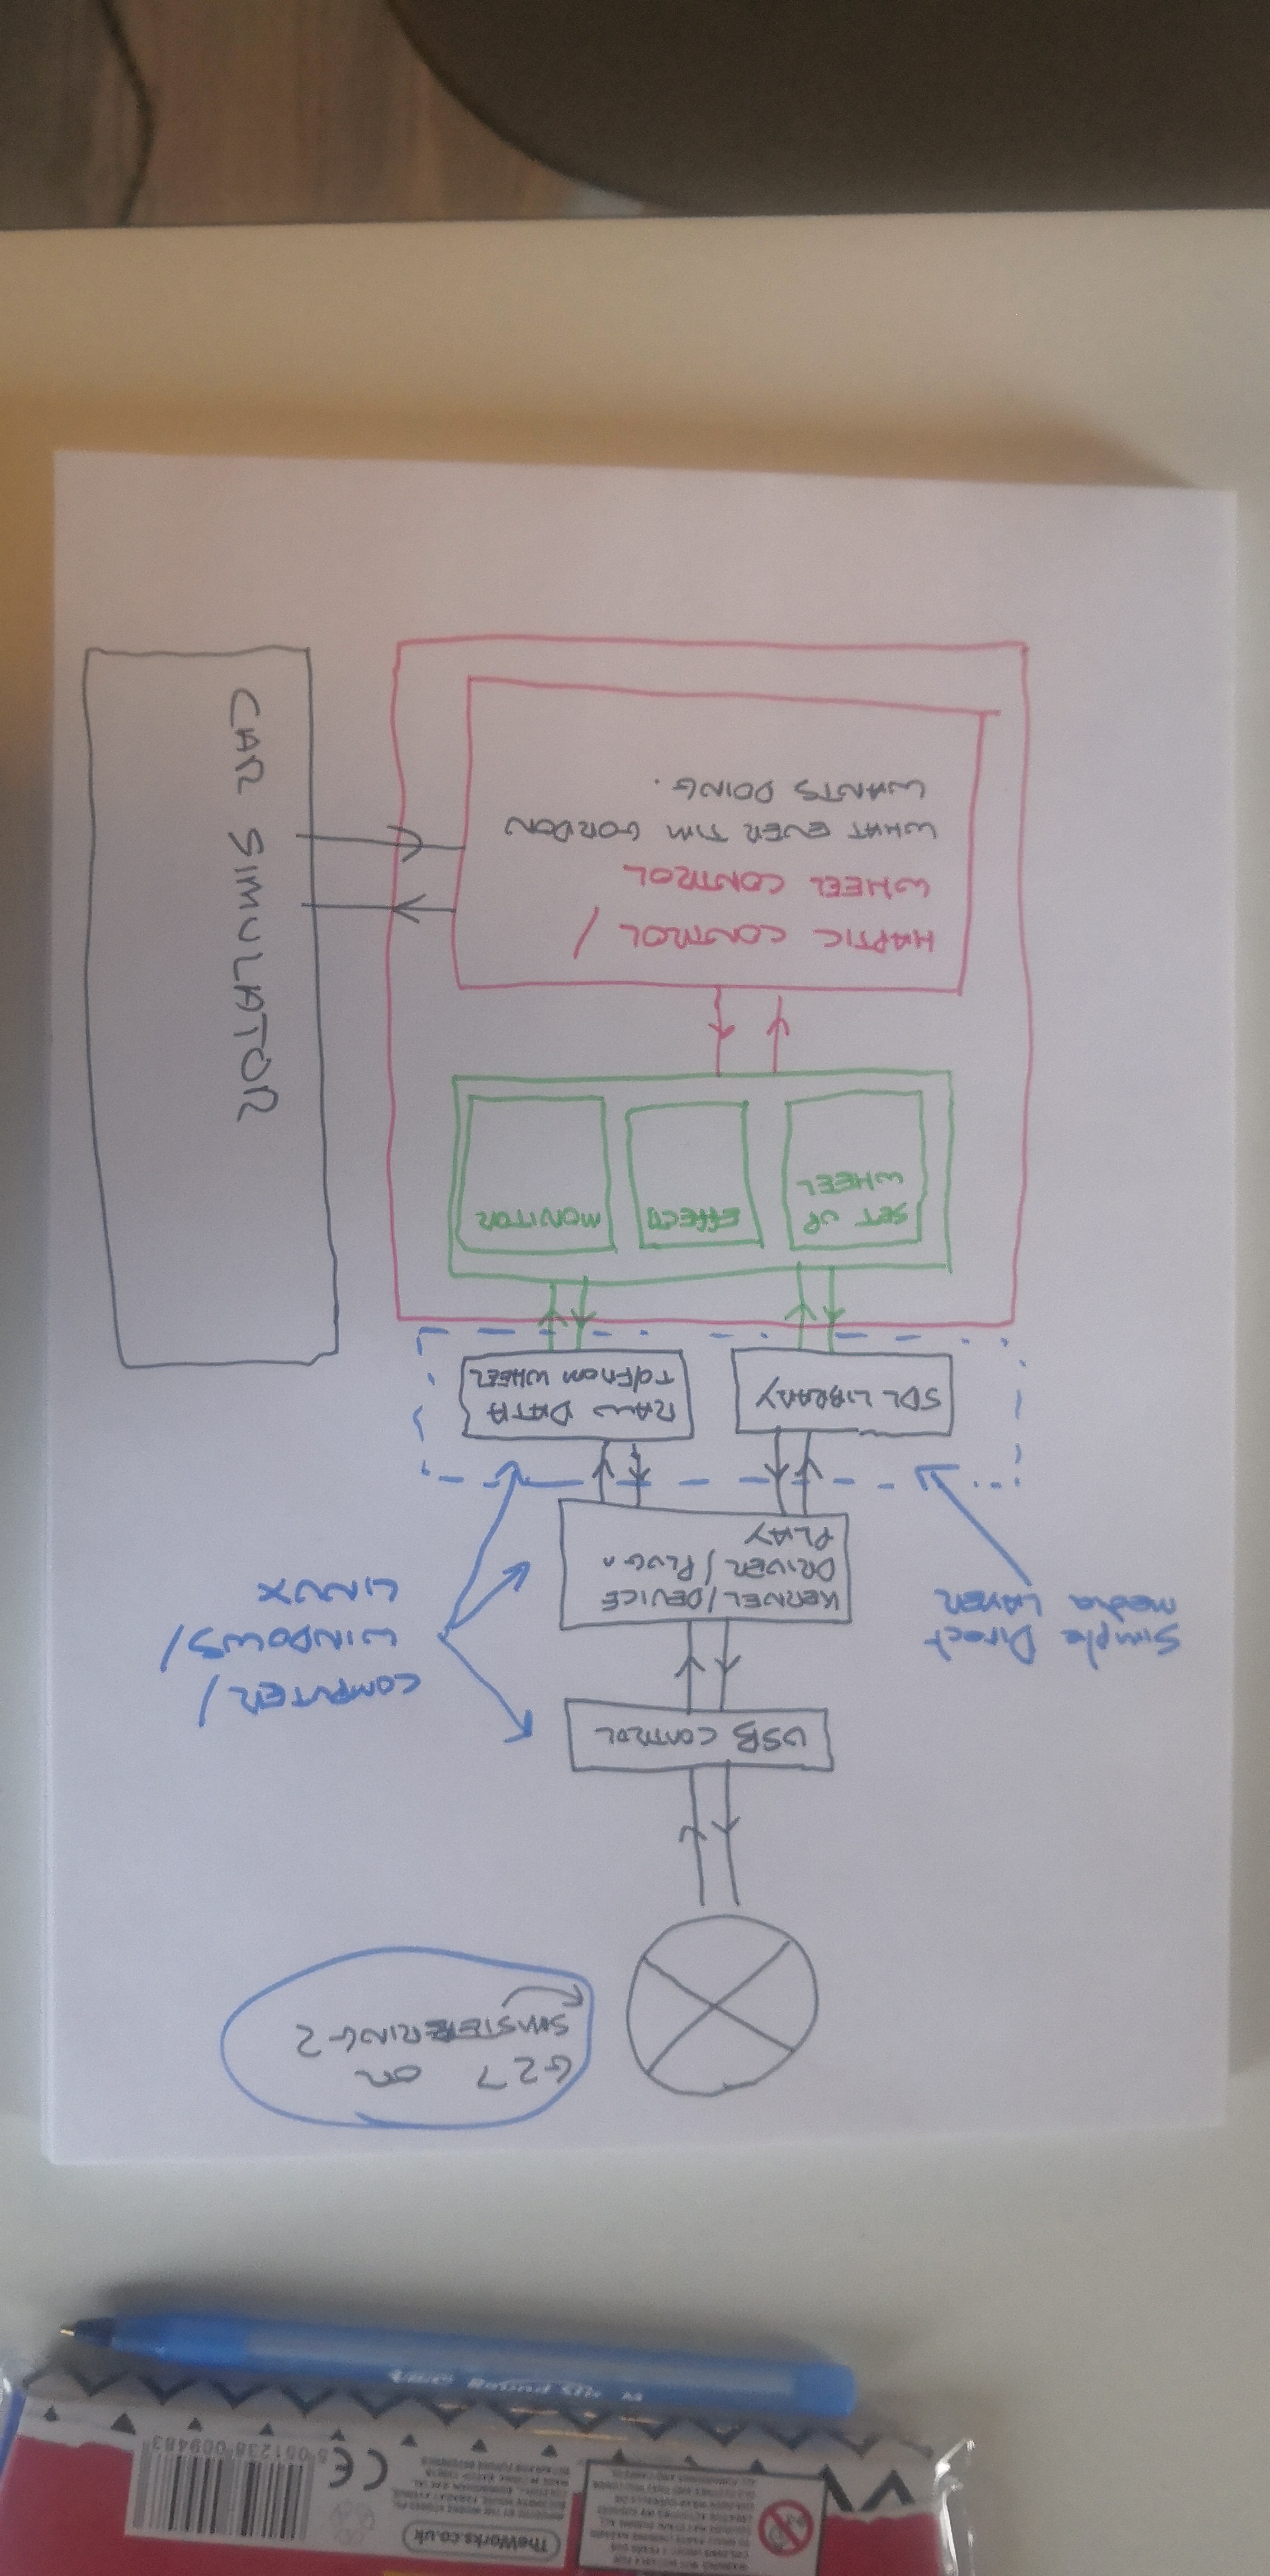 WARNING: NOT SUITABLE FOR
TheWorks.co.uk
CE
5 051238 009483
G27 OR
SMSTEERING2
USB CONTROL
COMPUTER/
WINDOWS/
LINUX
Simple Direct
media LAYER
KERNEL/DEVICE
DRIVER/PLUG n
PLAY
SDL LIBRARY
RAW DATA
TO/FROM WHEEL
SET UP
WHEEL
EFFECTS
MONITOR
HAPTIC CONTROL /
WHEEL CONTROL
WHAT EVER TIM GORDON
WANTS DOING.
CAR SIMULATOR